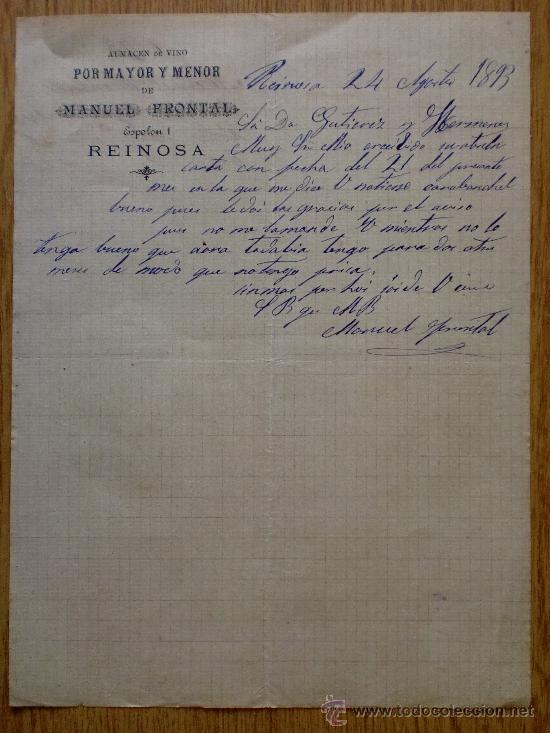 ALMACEN DE VINO
POR MAYOR Y MENOR
DE
MANUEL FRONTAL
Espolon 1
REINOSA
Reinosa 24 Agosto 1893
Sr Dn Gutierez y Hermanos
Muy Sr Mio erecibido su atenta
carta con fecha del 21 del presente
mes en la que me dice V notiene carabanchel
bueno pues le doi las gracias por el aviso
pues no me lamande V mientras no lo
tenga bueno que aora todabia tengo para dos otres
meses de modo que notengo prisa.
sinmas por hoi
S B q M B
Manuel Frontal
todocoleccion
www.todocoleccion.net